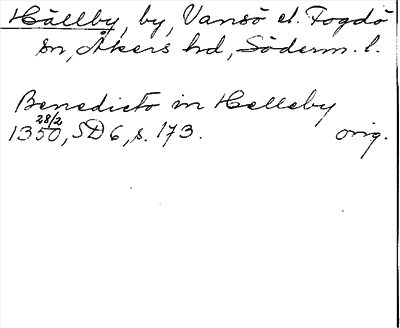 Hällby, by, Vansö el. Fogdö
sn, Åkers hd, Söderm. l.
Benedicto in Helleby
1350 28/2, SD 6, s. 173. orig.